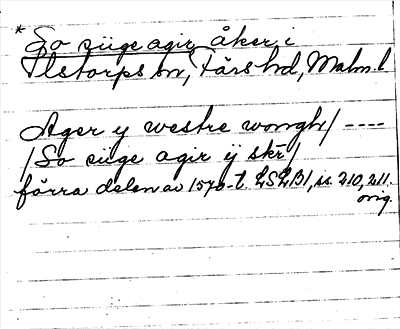 * So siige agir, åker i
Ilstorps sn, Färs hd, Malm. l.
Ager y westre wongh/ ----
/So siige agir ÿ skr/
förra delen av 1570-t. LSLB1, ss. 210, 211.
orig.